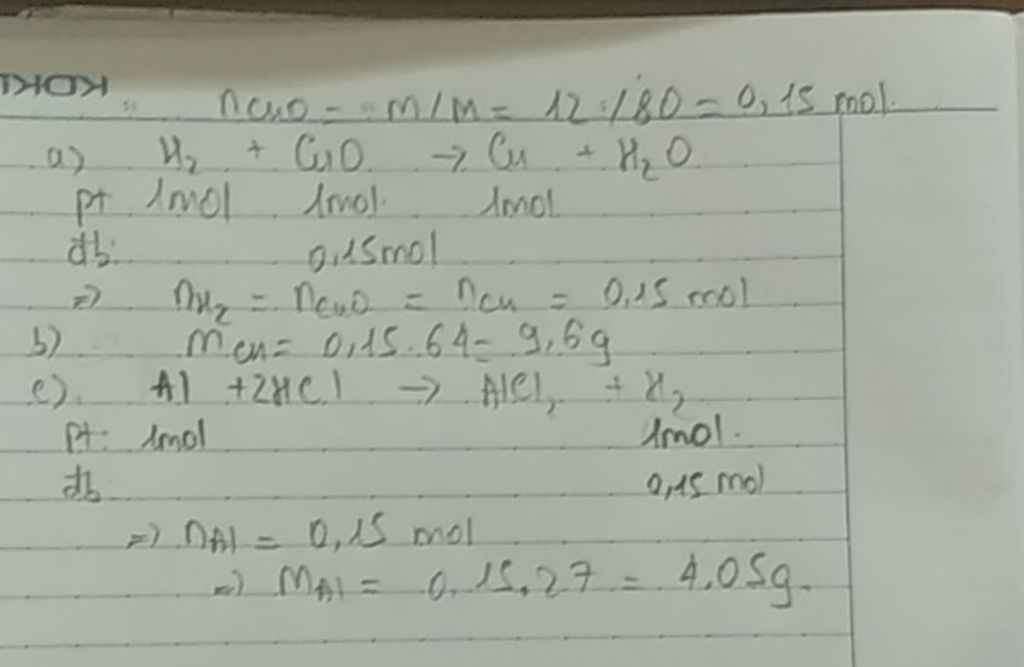 KOKU
nCuO = m/M = 12:/80 = 0,15 mol.
a) H₂ + CuO → Cu + H₂O
pt 1mol 1mol. 1mol
đb: 0,15mol
=> nH₂ = nCuO = nCu = 0,15 mol
b) mCu = 0,15.64 = 9,6g
c). Al + 2HCl → AlCl₂ + H₂
pt: 1mol 1mol.
đb 0,15 mol
=> nAl = 0,15 mol
=> mAl = 0,15.27 = 4,05g.